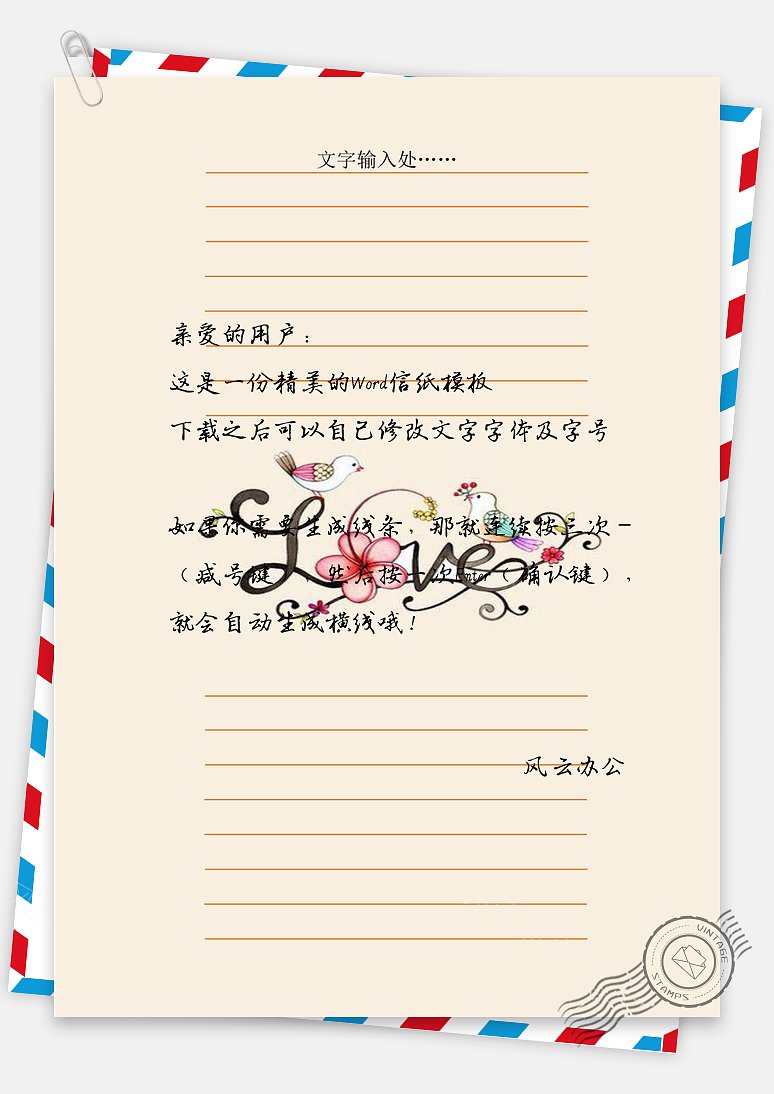 文字输入处……
亲爱的用户：
这是一份精美的Word信纸模板
下载之后可以自己修改文字字体及字号
Love
如果你需要生成线条，那就连续按三次－
（减号键 然后按一次Enter（确认键），
就会自动生成横线哦！
风云办公
VINTAGE
STAMPS